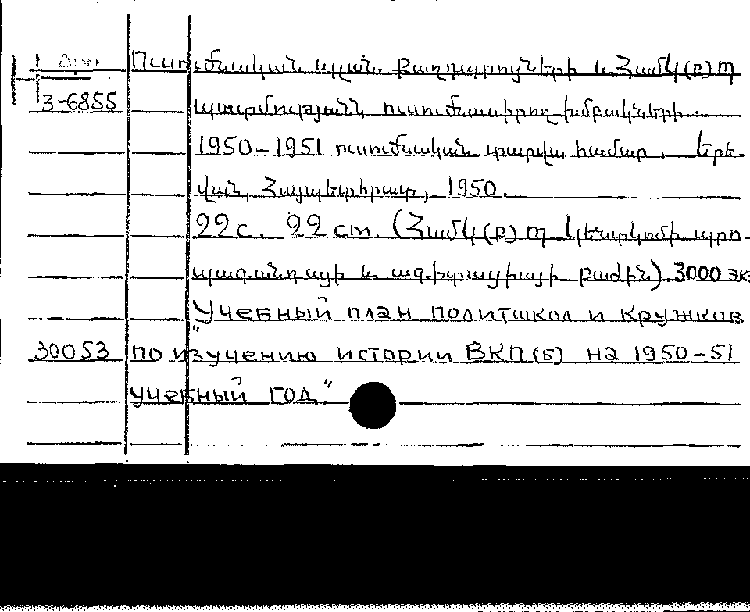 Ուսումնական պլան քաղդպրոցների և Համկ(բ)Պ
3-6855 պատմությունն ուսումնասիրող խմբակների
1950-1951 ուսումնական տարվա համար. Երե-
վան, Հայպետհրատ, 1950.
22 с. 22 cm. (Համկ(բ)Պ կենտկոմի պրո-
պագանդայի և ագիտացիայի բաժին). 3000 экз
"Учебный план политшкол и кружков
30053 по изучению истории ВКП(б) на 1950-51
учебный год"